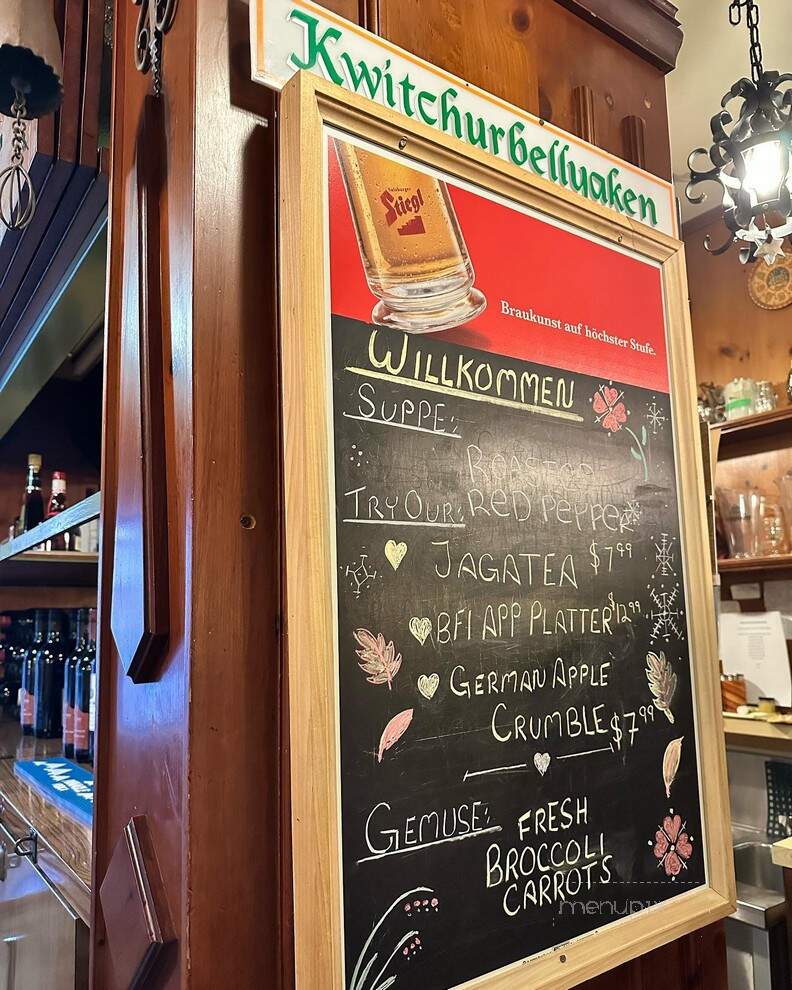 Kwitchurbellyaken
Salzburger
Stiegl
Braukunst auf höchster Stufe.
WILLKOMMEN
SUPPE:
ROASTED
TRY OUR: RED PEPPER
JAGATEA $7.99
BFI APP PLATTER $12.99
GERMAN APPLE
CRUMBLE $7.99
GEMUSE: FRESH
BROCCOLI
CARROTS